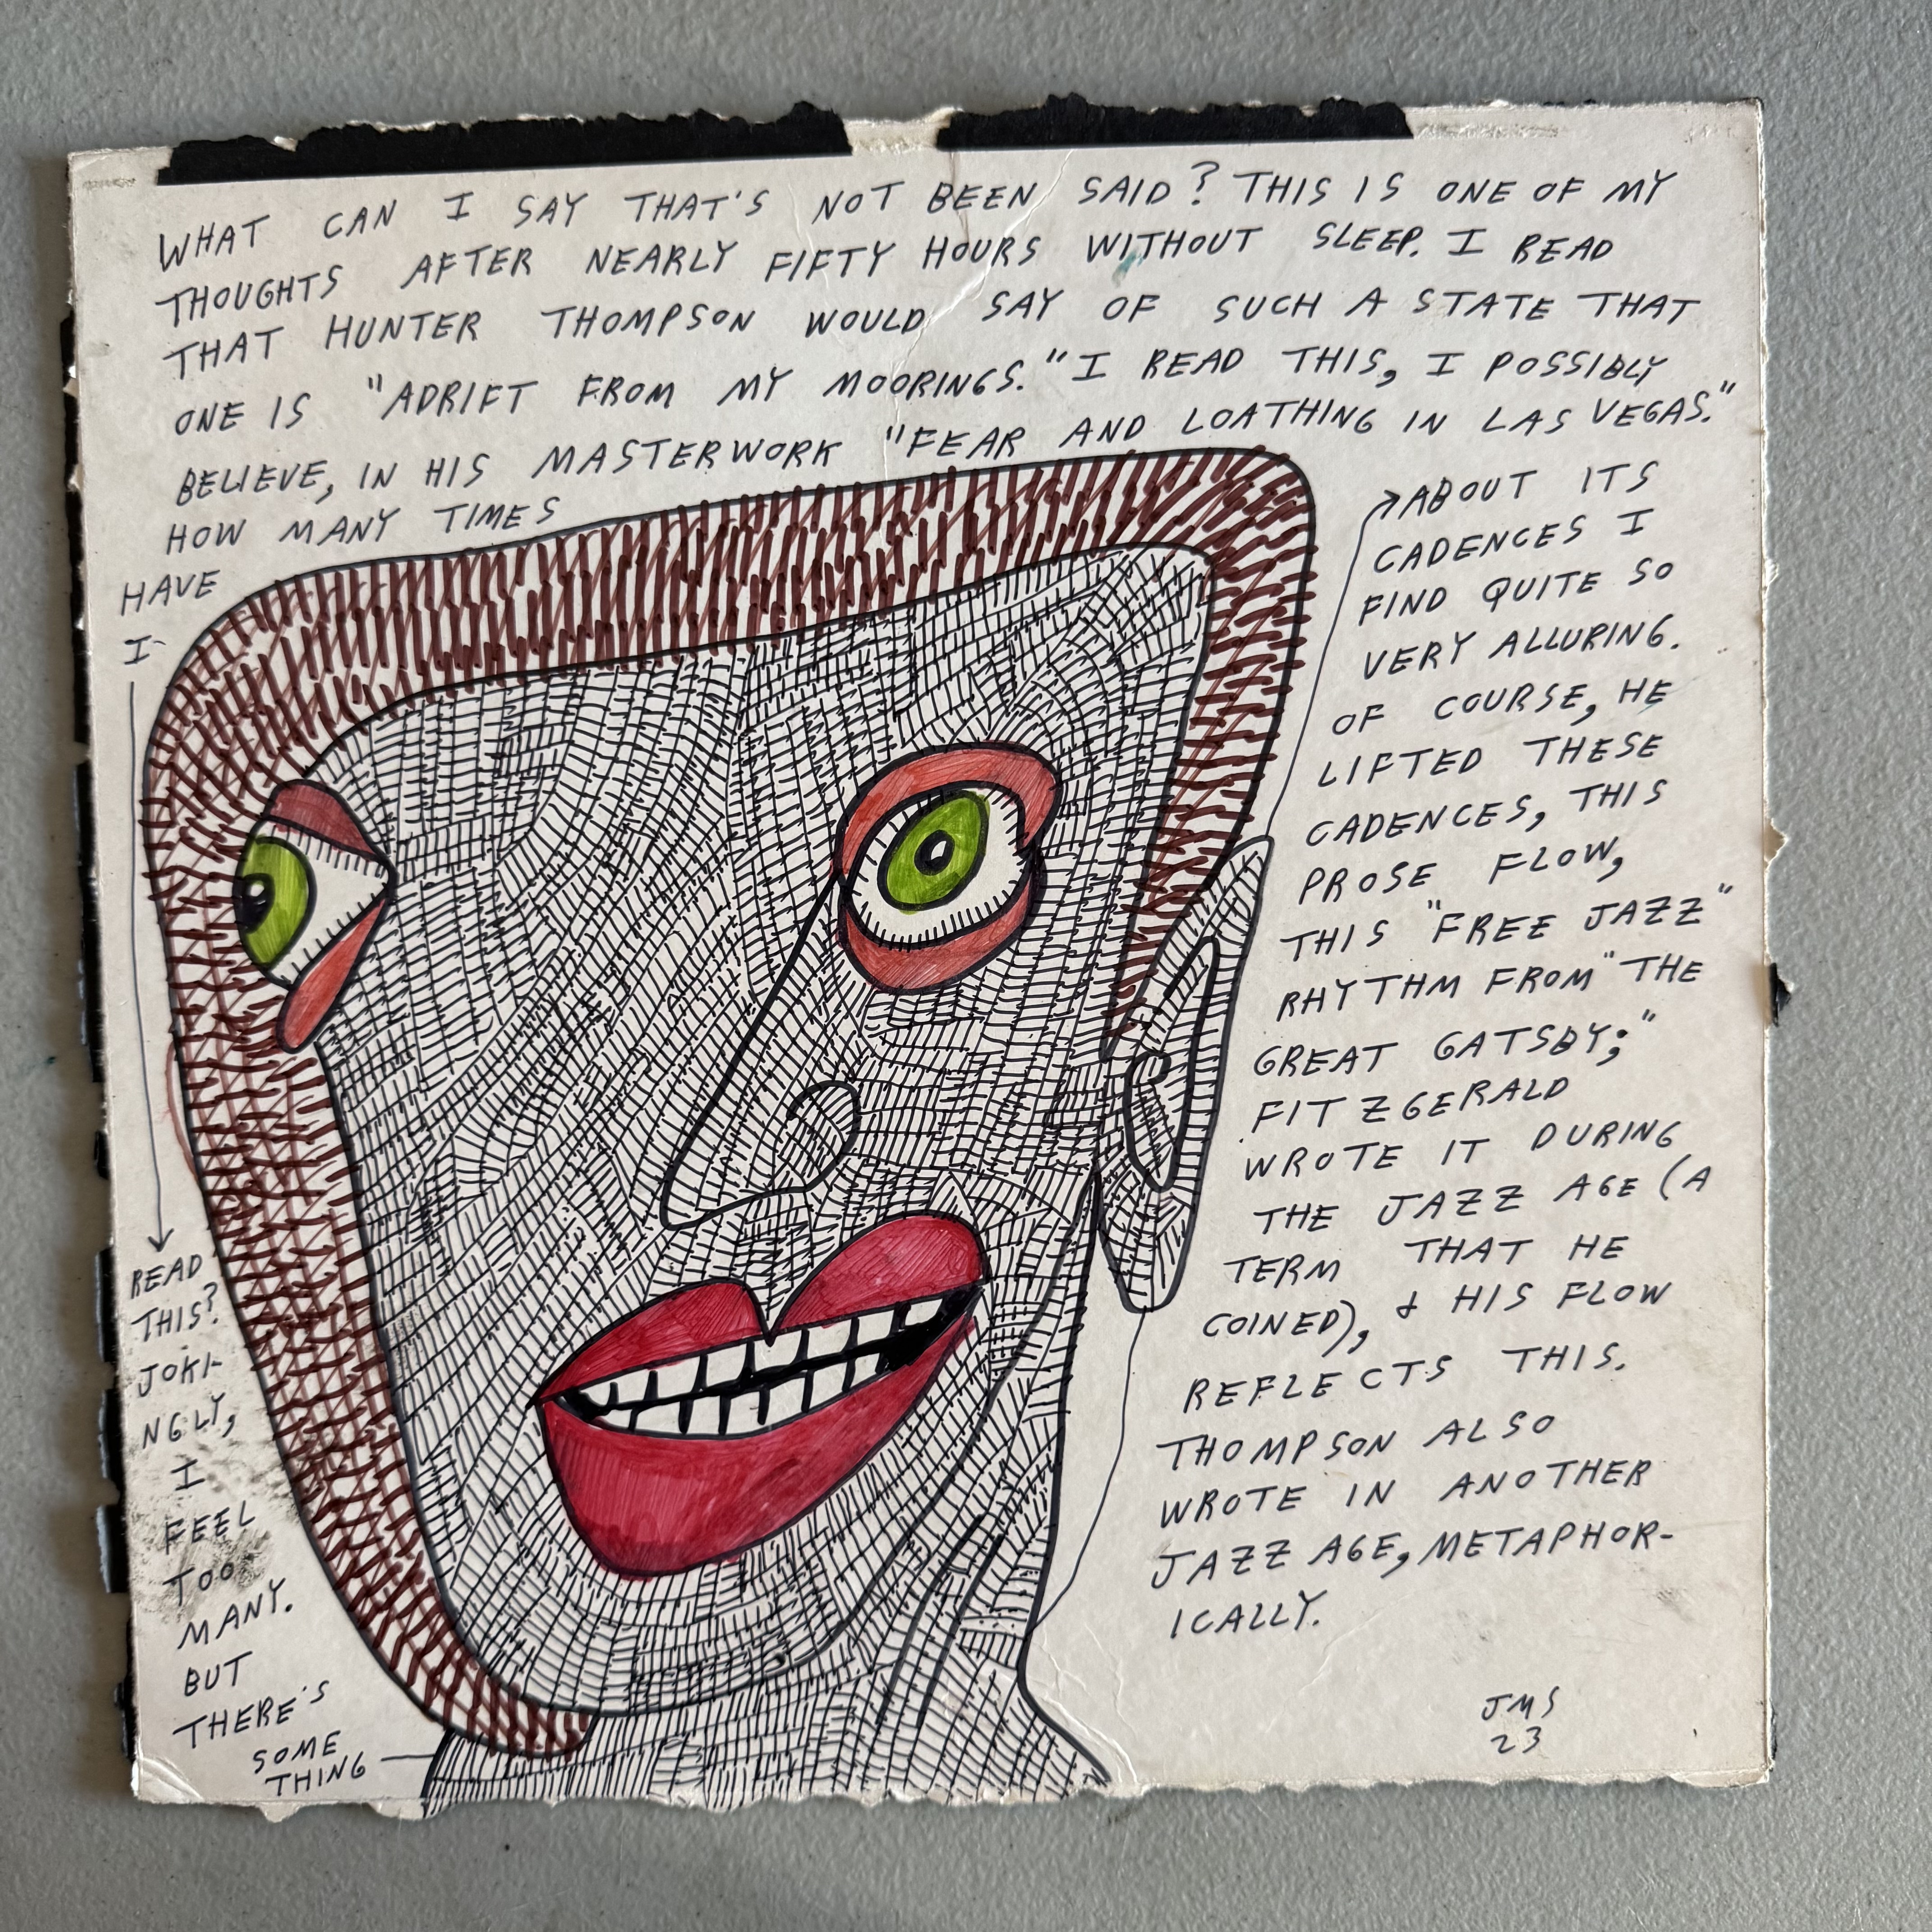 WHAT CAN I SAY THAT'S NOT BEEN SAID? THIS IS ONE OF MY
THOUGHTS AFTER NEARLY FIFTY HOURS WITHOUT SLEEP. I READ
THAT HUNTER THOMPSON WOULD SAY OF SUCH A STATE THAT
ONE IS "ADRIFT FROM MY MOORINGS." I READ THIS, I POSSIBLY
BELIEVE, IN HIS MASTERWORK "FEAR AND LOATHING IN LAS VEGAS."
HOW MANY TIMES
HAVE
I
READ
THIS?
JOKI-
NGLY,
I
FEEL
TOO
MANY.
BUT
THERE'S
SOME
THING
ABOUT ITS
CADENCES I
FIND QUITE SO
VERY ALLURING.
OF COURSE, HE
LIFTED THESE
CADENCES, THIS
PROSE FLOW,
THIS "FREE JAZZ"
RHYTHM FROM "THE
GREAT GATSBY;"
FITZGERALD
WROTE IT DURING
THE JAZZ AGE (A
TERM THAT HE
COINED), & HIS FLOW
REFLECTS THIS.
THOMPSON ALSO
WROTE IN ANOTHER
JAZZ AGE, METAPHOR-
ICALLY.
JMS
23